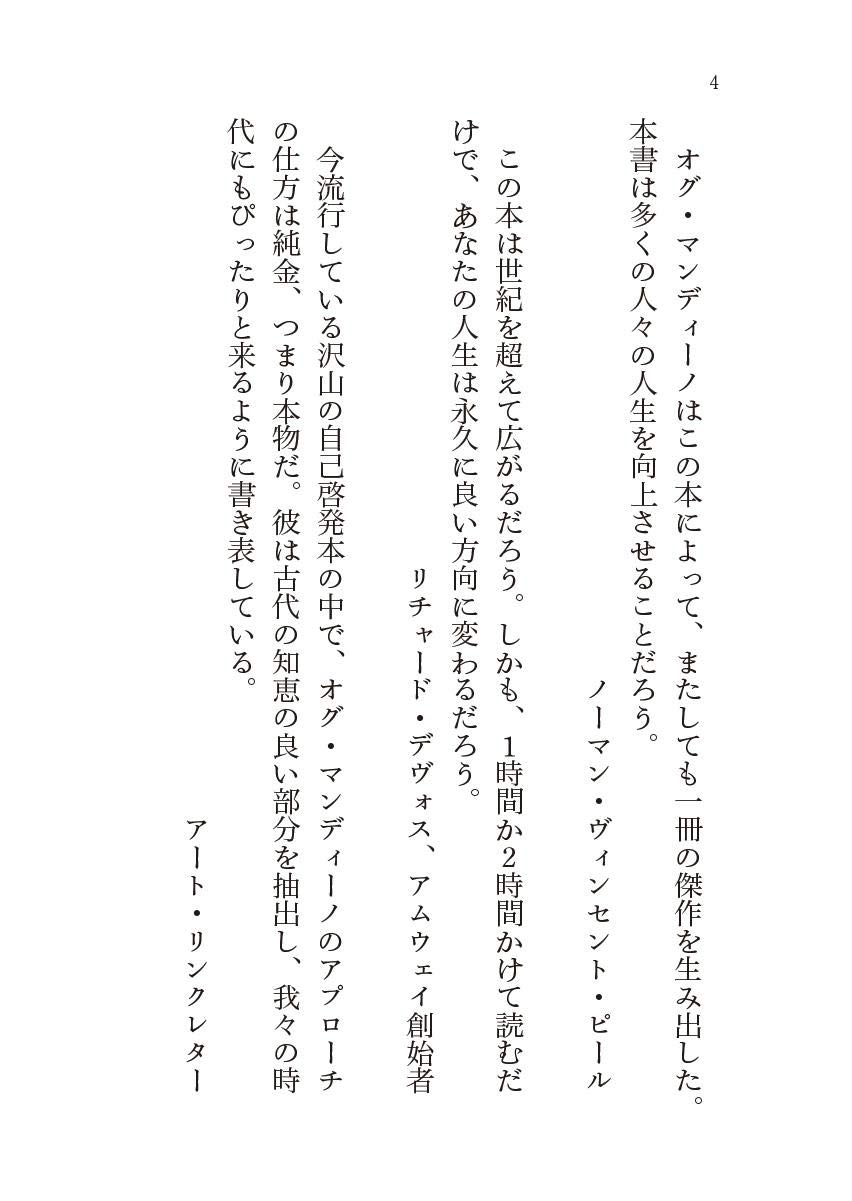 4
オグ・マンディーノはこの本によって、またしても一冊の傑作を生み出した。
本書は多くの人々の人生を向上させることだろう。
ノーマン・ヴィンセント・ピール
この本は世紀を超えて広がるだろう。しかも、１時間か２時間かけて読むだ
けで、あなたの人生は永久に良い方向に変わるだろう。
リチャード・デヴォス、アムウェイ創始者
今流行している沢山の自己啓発本の中で、オグ・マンディーノのアプローチ
の仕方は純金、つまり本物だ。彼は古代の知恵の良い部分を抽出し、我々の時
代にもぴったりと来るように書き表している。
アート・リンクレター